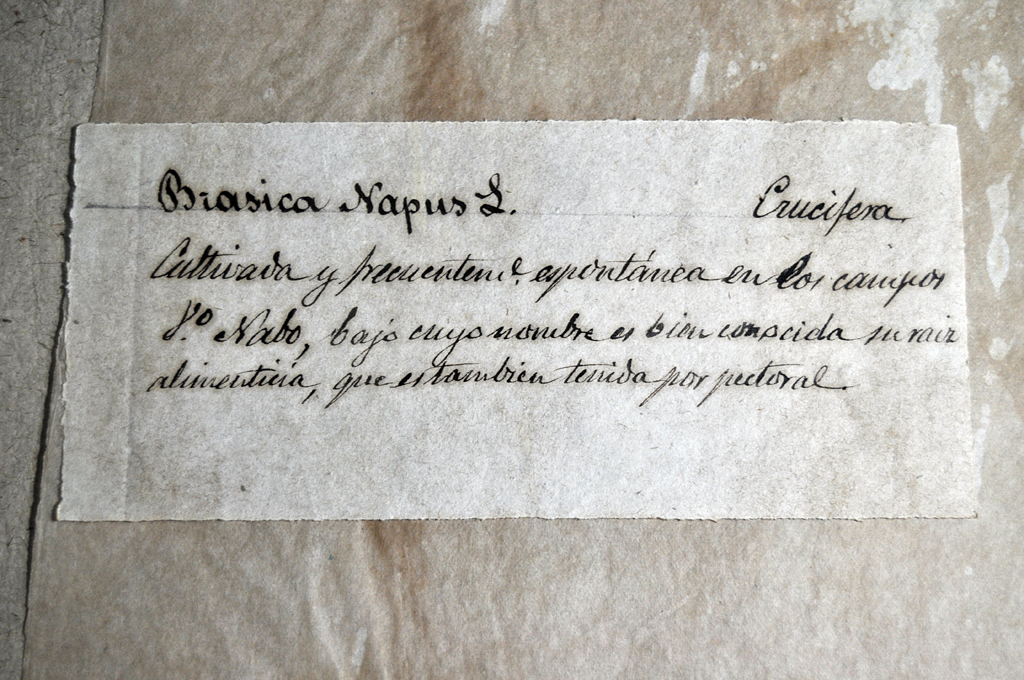 Brasica Napus L. Crucifera
Cultivada y frecuentem.e espontánea en los campos
V.o Nabo, bajo cuyo nombre es bien conocida su raiz
alimenticia, que es tambien tenida por pectoral.